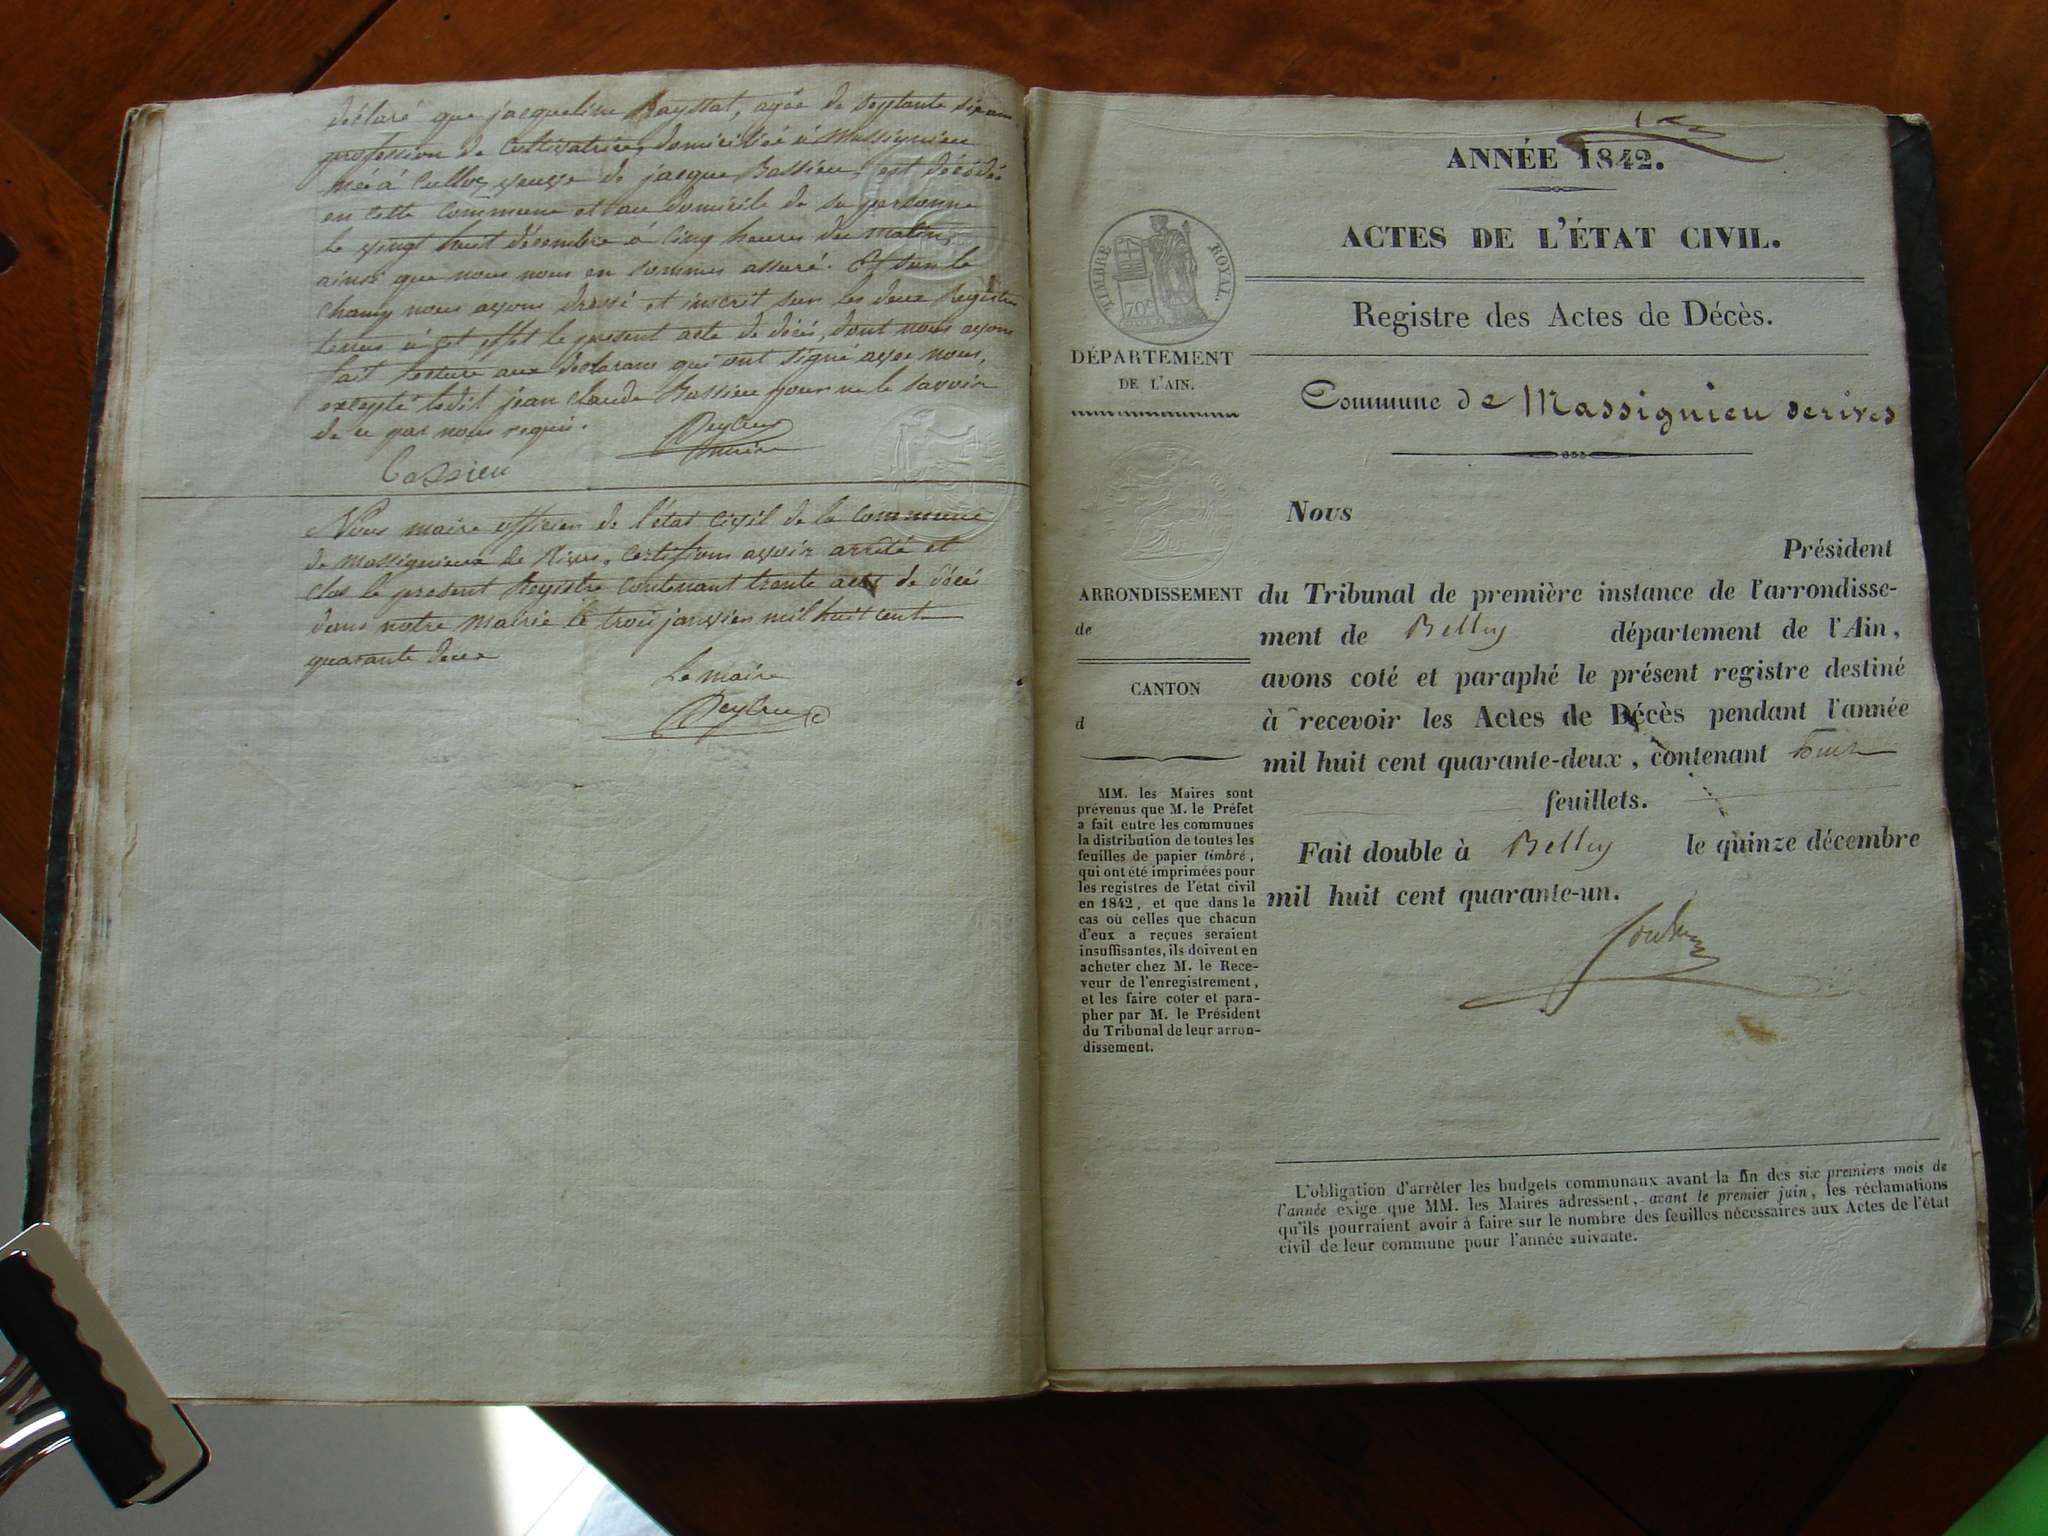 déclaré que jacqueline Rayssat, agée de septante six ans
profession de Cultivatrice, domiciliée à Massignieu
née à Culloz, veuve de jacque Bassieu, est décédée
en cette commune et au domicile de sa personne
le vingt huit décembre à cinq heures du matin,
ainsi que nous nous en sommes assuré. Et sur le
champ nous avons dressé et inscrit sur les deux Registres
tenus à cet effet le present acte de décès, dont nous avons
fait lecture aux déclarans qui ont signé avec nous,
excepté ledit jean claude Bassieu pour ne le savoir
de ce par nous requis.
Cassien
Nous maire officier de l'état civil de la commune
de Massignieux de Rives, certifions avoir arrêté et
clos le present Registre contenant trente actes de décès
dans notre Mairie le trois janvier mil huit cent
quarante deux
Le maire
ANNÉE 1842.
ACTES DE L'ÉTAT CIVIL.
TIMBRE ROYAL.
70c
Registre des Actes de Décès.
DÉPARTEMENT
DE L'AIN.
Commune de Massignieu derives
Nous
Président
ARRONDISSEMENT
de
CANTON
d
du Tribunal de première instance de l'arrondisse-
ment de Belley département de l'Ain,
avons coté et paraphé le présent registre destiné
à recevoir les Actes de Décès pendant l'année
mil huit cent quarante-deux, contenant
feuillets.
Fait double à Belley le quinze décembre
mil huit cent quarante-un.
MM. les Maires sont
prévenus que M. le Préfet
a fait entre les communes
la distribution de toutes les
feuilles de papier timbré,
qui ont été imprimées pour
les registres de l'état civil
en 1842, et que dans le
cas où celles que chacun
d'eux a reçues seraient
insuffisantes, ils doivent en
acheter chez M. le Rece-
veur de l'enregistrement,
et les faire coter et para-
pher par M. le Président
du Tribunal de leur arron-
dissement.
L'obligation d'arrêter les budgets communaux avant la fin des six premiers mois de
l'année exige que MM. les Maires adressent, avant le premier juin, les réclamations
qu'ils pourraient avoir à faire sur le nombre des feuilles nécessaires aux Actes de l'état
civil de leur commune pour l'année suivante.